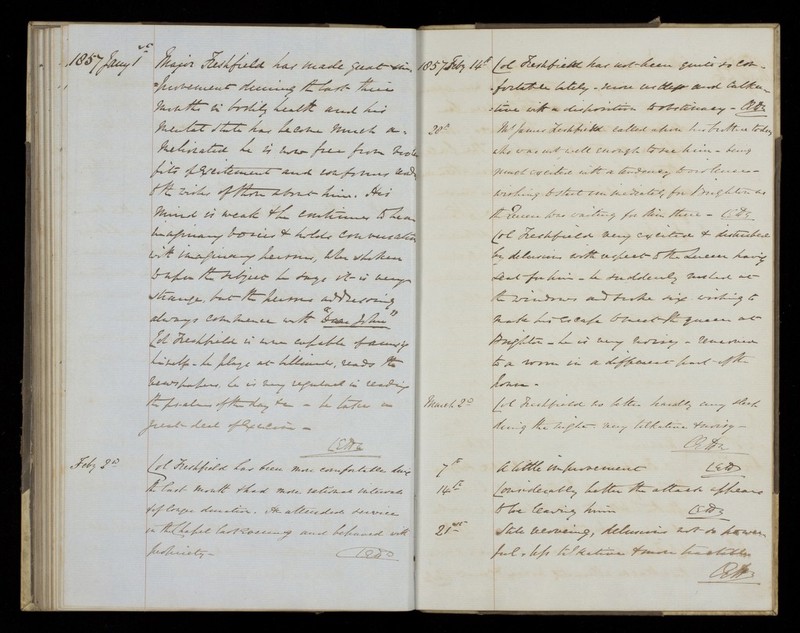 1857 Jany 1st Major Freshfield has made great im
provement during the last three
months in bodily health and his
mental state has become much a-
meliorated he is now free from violent
fits of excitement and conforms
to the wishes of those about him. His
mind is weak & he continues to hear
imaginary voices & holds conversation
with imaginary persons, when spoken
to upon the subject he says it is very
strange, but the persons addressing
always commence with "Dear John"
Col Freshfield is now capable of amusing
himself - he plays at billiards, reads the
newspapers, he is very regular in reading
the psalms of the day &c - he takes a
great deal of exercise -
Feby 2d Col Freshfield has been more comfortable during
the last month & had more rational intervals
& of longer duration. He attended service
in the Chapel last evening and behaved with
propriety -
1857 Feby 14th Col Freshfield has not been quite so com-
fortable lately - more restless and talka-
tive with a disposition to obstinacy -
20th Mr James Freshfield called upon his brother today
who was not well enough to see him - being
much excited with a tendency to violence -
wishing to start immediately for Brighton as
the Queen was waiting for him there -
Col Freshfield very excited & disturbed
by delusions with respect to the Queen having
sent for him - he suddenly rushed at
the windows and broke six wishing to
make his escape to meet the queen at
Brighton - he is very noisy - removed
to a room in a different part of the
house -
March 2d Col Freshfield no better hardly any sleep
during the night very talkative & noisy -
7th A little improvement
14th Considerably better the attack appears
to be leaving him
21st Still improving, delusions not so power
ful, less talkative & more tractable